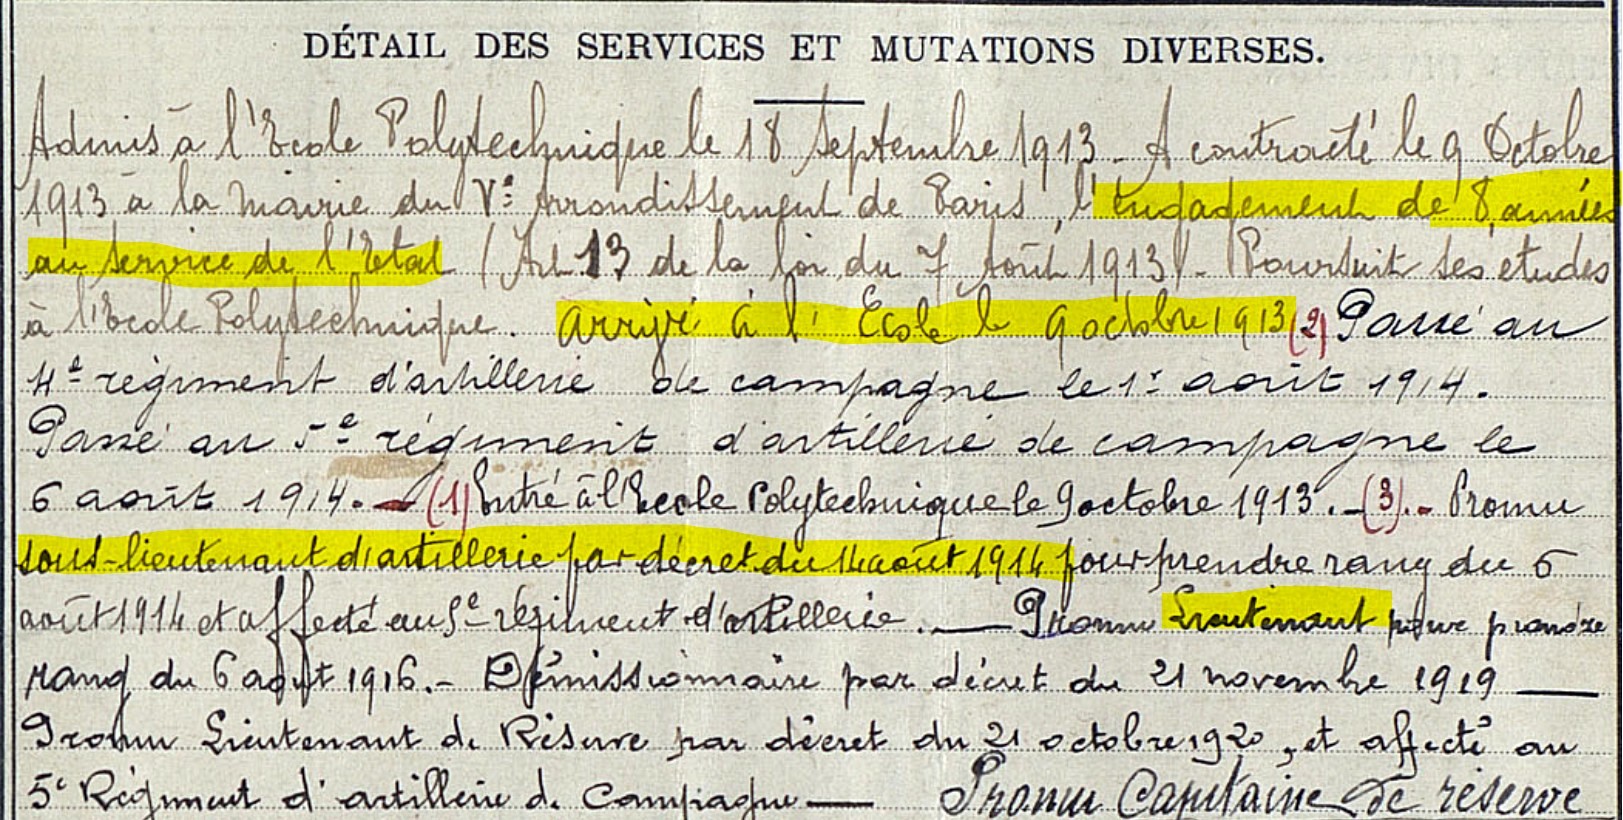 DÉTAIL DES SERVICES ET MUTATIONS DIVERSES.
Admis à l'Ecole Polytechnique le 18 Septembre 1913. A contracté le 9 Octobre
1913 à la mairie du Ve Arrondissement de Paris, l'engagement de 8 années
au service de l'Etat (Art 13 de la loi du 7 Août 1913). Poursuit ses études
à l'Ecole Polytechnique. arrivé à l'Ecole le 9 octobre 1913 (2) Passé au
4e régiment d'artillerie de campagne le 1r août 1914.
Passé au 5e régiment d'artillerie de campagne le
6 août 1914. — (1) Entré à l'Ecole Polytechnique le 9 octobre 1913. — (3). - Promu
sous-lieutenant d'artillerie par décret du 14 août 1914 pour prendre rang du 6
août 1914 et affecté au 5e régiment d'artillerie. — Promu Lieutenant pour prendre
rang du 6 août 1916. - Démissionnaire par décret du 21 novembre 1919 —
Promu Lieutenant de Réserve par décret du 21 octobre 1920, et affecté au
5e Régiment d'artillerie de Campagne — Promu Capitaine de réserve